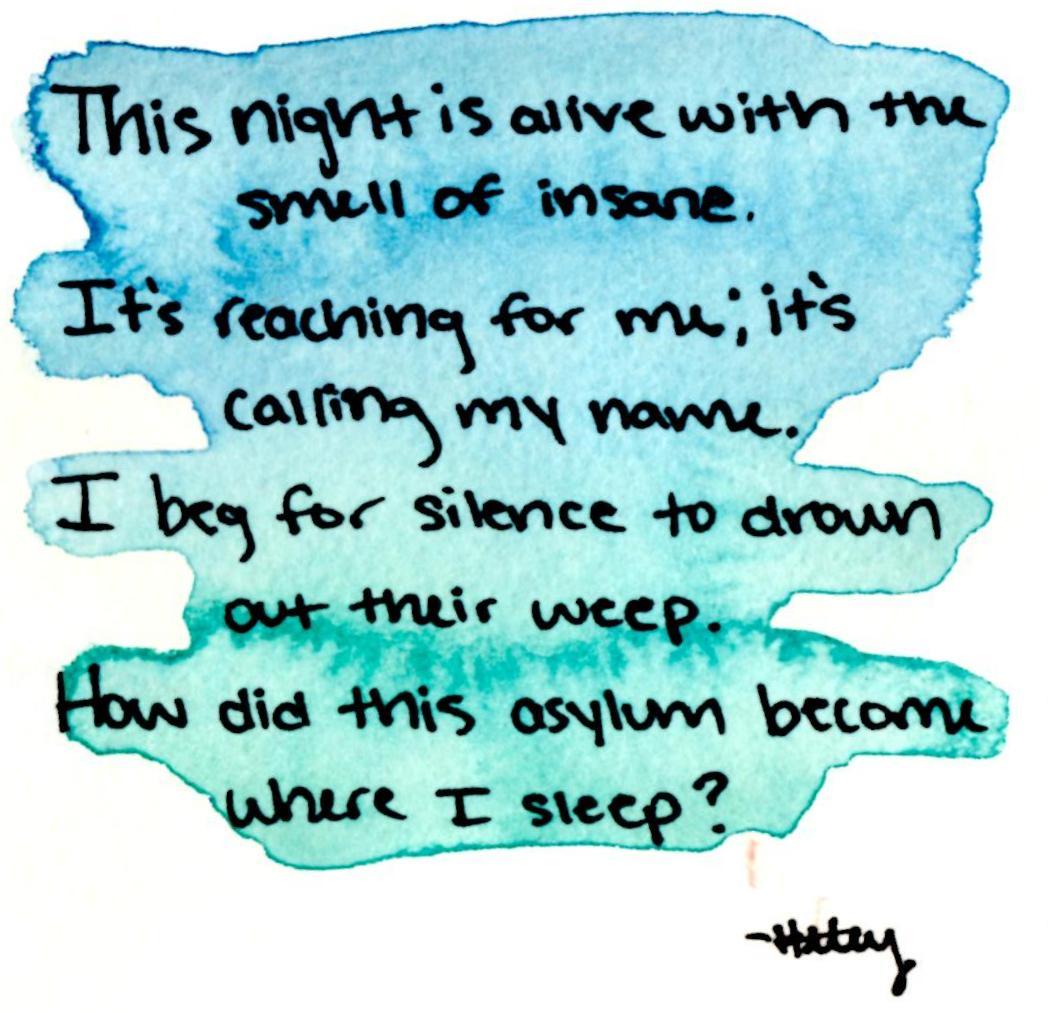 This night is alive with the
smell of insane.
It's reaching for me; it's
calling my name.
I beg for silence to drown
out their weep.
How did this asylum become
where I sleep?